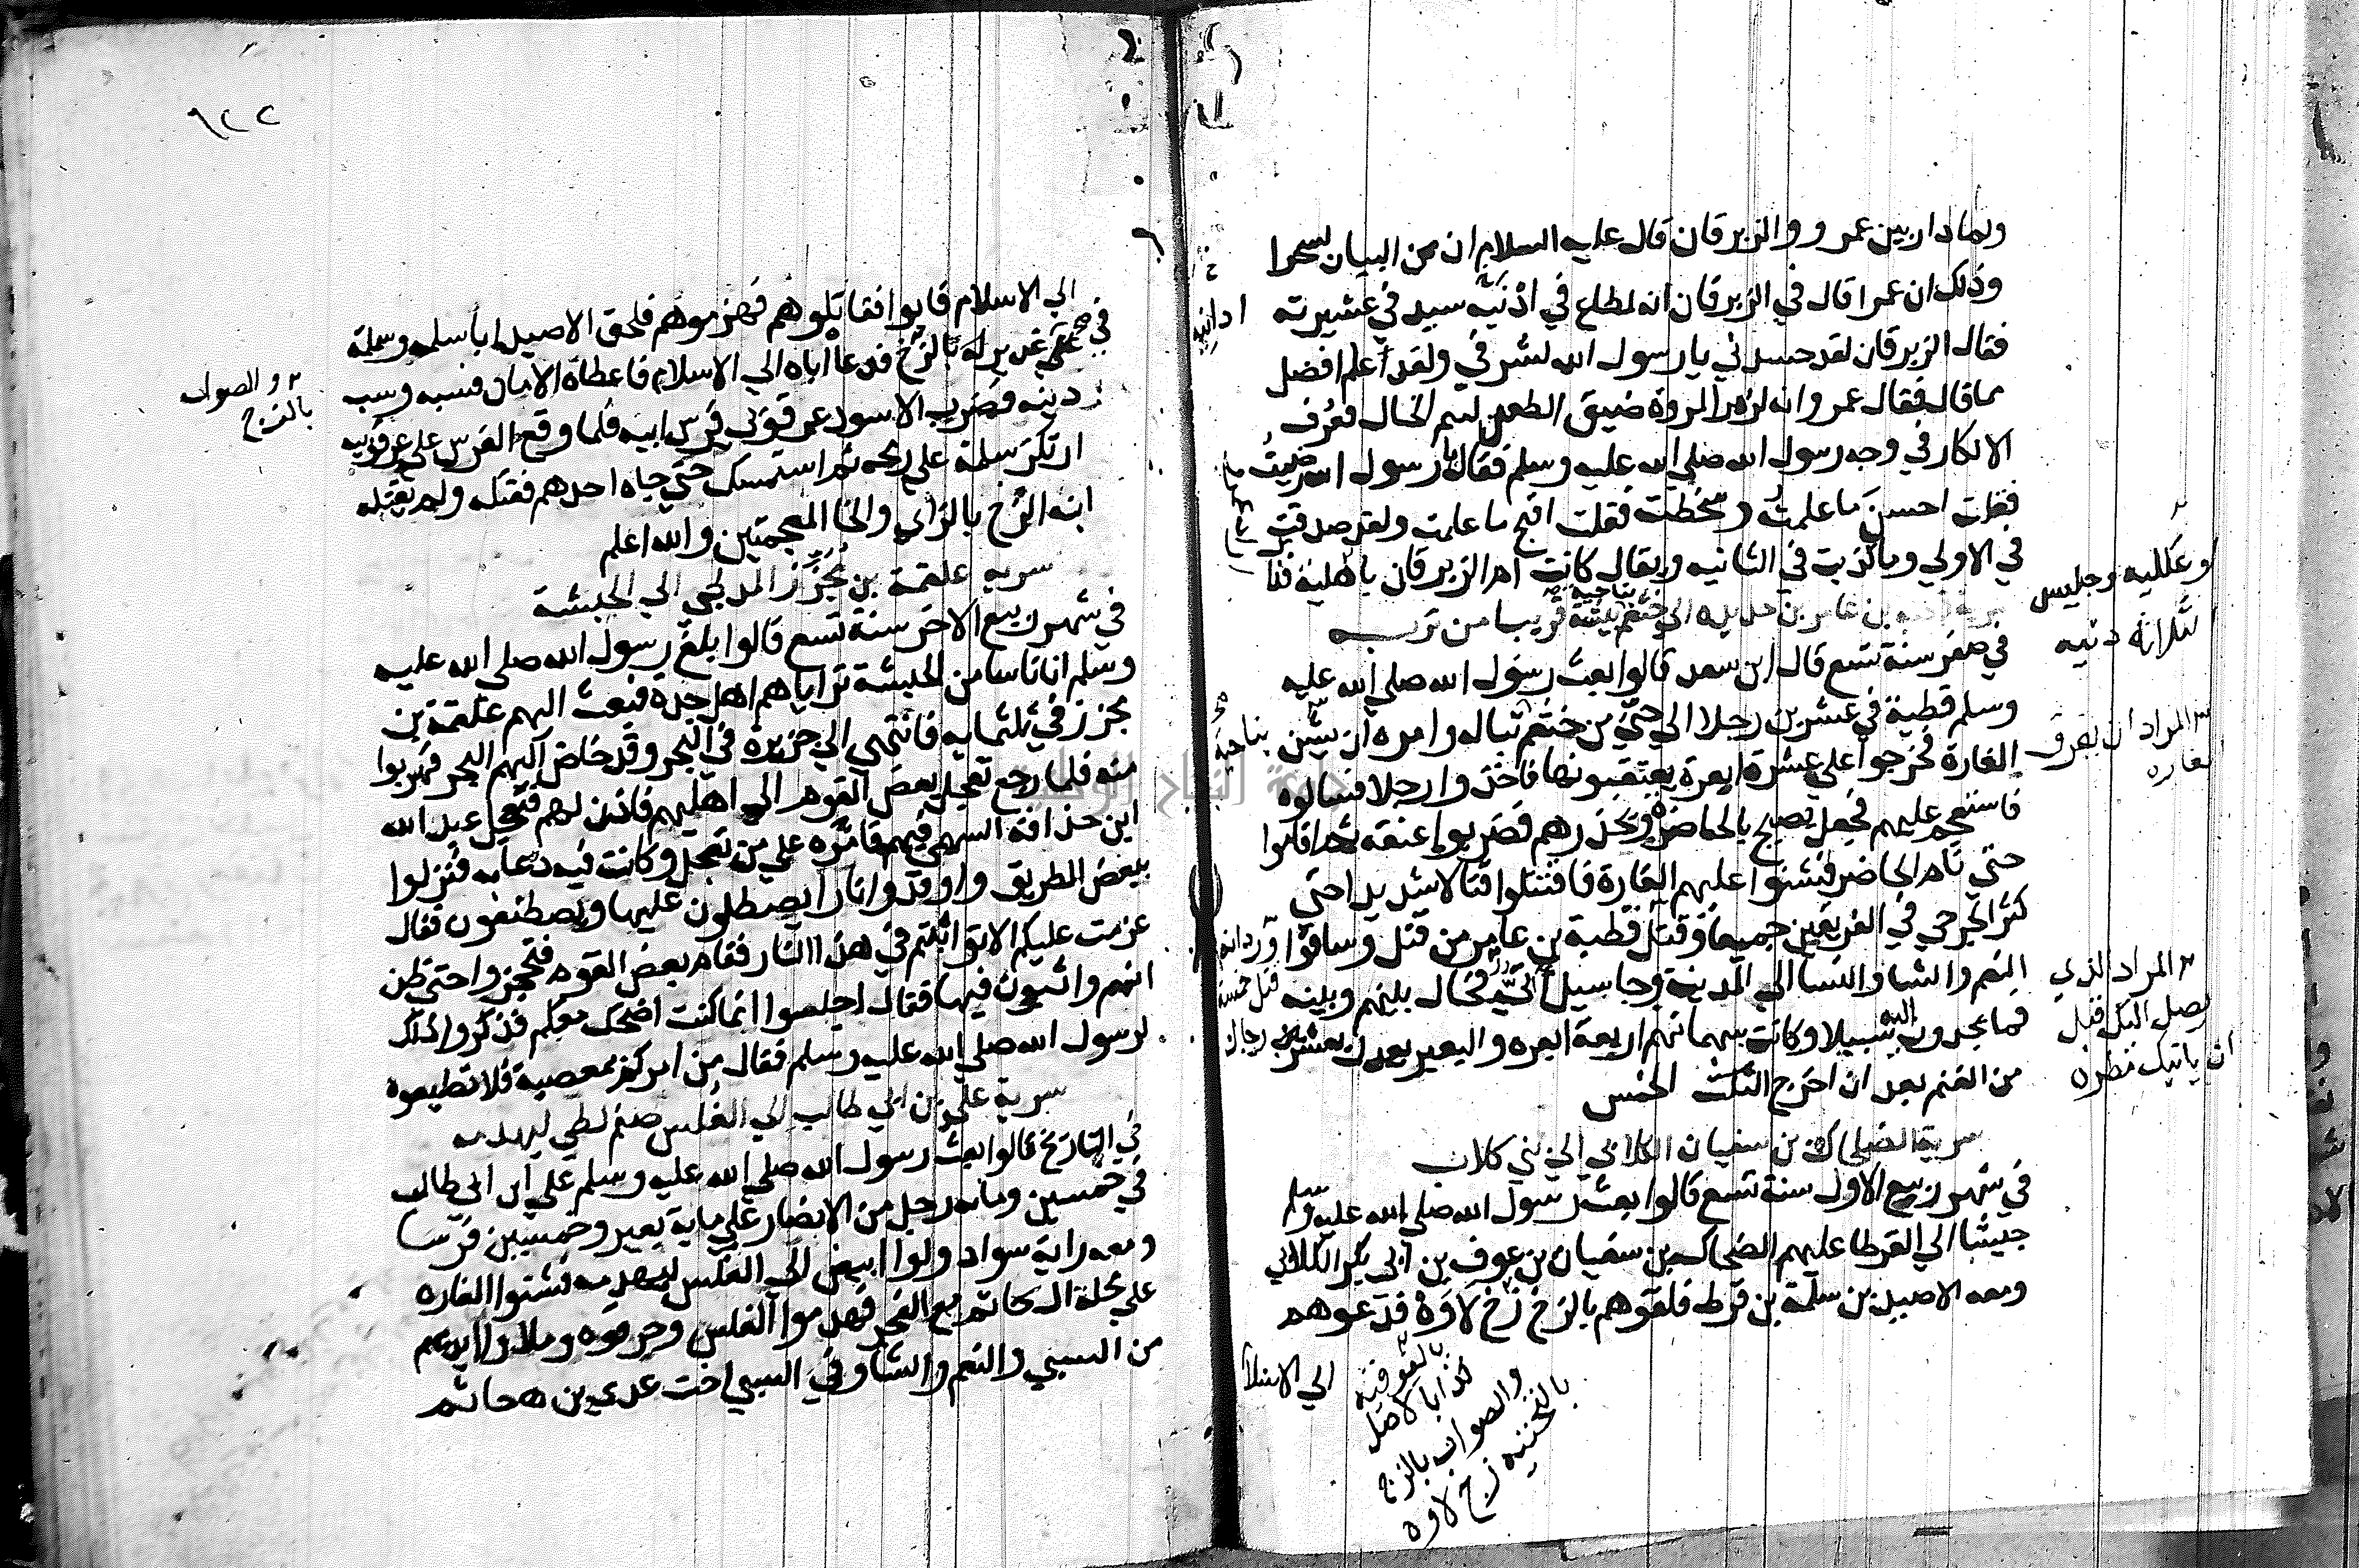 ولما دار بين عمرو والزبرقان قال عليه السلام ان من البيان لسحرا
وذلك ان عمرا قال في الزبرقان انه لمطاع في اذنيه سيد في عشيرته
ادانيه
فقال الزبرقان لقد حسدني يا رسول الله لشرفي ولقد اعلم افضل
مما قال فقال عمرو انه لزمر المروة ضيق العطن لئيم الخال فعرف
الانكار في وجه رسول الله صلى الله عليه وسلم فقال يا رسول الله رضيت
فقلت احسن ما علمت وسخطت فقلت اقبح ما علمت ولقد صدقت
في الاولى وما كذبت في الثانيه ويقال كانت ام الزبرقان باهلية
بن عامر بن حديده الى خثعم بناحية بيشة قريبا من تربه
في صفر سنة تسع قال ابن سعد قالوا بعث رسول الله صلى الله عليه
وسلم قطبة في عشرين رجلا الى حي من خثعم تباله وامره ان يشن
بناحية
الغارة فخرجوا على عشرة ابعرة يعتقبونها فاخذوا رجلا فسالوه
فاستعجم عليهم فجعل يصيح بالحاضره ويحذرهم فضربوا عنقه ثم اقاموا
حتى نام الحاضر فشنوا عليهم الغارة فاقتتلوا قتالا شديدا حتى
كثر الجرحى في الفريقين جميعا وقتل قطبة بن عامر من قتل وساقوا
النعم والشا والنسا الى المدينة وجا سيل اتي فحال بينهم وبينه
فما يجدون اليه سبيلا وكانت سهمانهم اربعة ابعره والبعير يعدل بعشر
من الغنم بعد ان اخرج الخمس
المراد ان يفرق
الغاره
المراد الذي
يصل اليك قبل
ان ياتيك مطره
سرية الضحاك بن سفيان الكلابي الى بني كلاب
في شهر ربيع الاول سنة تسع قالوا بعث رسول الله صلى الله عليه وسلم
جيشا الى القرطا عليهم الضحاك بن سفيان بن عوف بن ابي بكر الكلابي
ومعه الاصيد بن سلمة بن قرط فلقوهم بالزخ زخ لاوة فدعوهم
الى الاسلا
كذا بالاصل
والصواب بالزج
زج لاوه
٩٢٢
الى الاسلام فابوا فقاتلوهم فهزموهم فلحق الاصيد اباه سلمه وسلمة
في غدير له بالزخ فدعا اباه الى الاسلام فاعطاه الامان فسبه وسب
والصواب
بالزج
دينه فضرب الاسود عرقوبي فرس ابيه فلما وقع الفرس على عرقوبيه
ارتكز سلمة على رمحه ثم استمسك حتى جاه احدهم فقتله ولم يقتله
ابنه الزخ بالزاي والخا المعجمتين والله اعلم
سريه علقمة بن مجزز المدلجي الى الحبشة
في شهر ربيع الاخر سنة تسع قالوا بلغ رسول الله صلى الله عليه
وسلم ان ناسا من الحبشة تراياهم اهل جده فبعث اليهم علقمة بن
مجزز في ثلثمايه فانتهى الى جزيرة في البحر وقد خاض اليهم البحر فهربوا
منه فلما رجع تعجل بعض القوم الى اهليهم فاذن لهم فتعجل عبد الله
ابن حذافة السهمي فيهم فامره على من تعجل وكانت فيه دعابه فنزلوا
ببعض الطريق واوقدوا نارا يصطلون عليها ويصطنعون فقال
عزمت عليكم الا تواثبتم في هذا النار فقام بعض القوم فتحجزوا حتى ظن
انهم واثبون فيها فقال اجلسوا انما كنت اضحك معكم فذكروا ذلك
لرسول الله صلى الله عليه وسلم فقال من امركم بمعصية فلا تطيعوه
سرية علي بن ابي طالب الى الفلس صنم لطي ليهدمه
في التاريخ قالوا بعث رسول الله صلى الله عليه وسلم علي ابن ابي طالب
في خمسين ومايه رجل من الانصار على ماية بعير وخمسين فرسا
ومعه راية سوداء ولوا ابيض الى الفلس ليهدمه فشنوا الغاره
على محلة ال حاتم مع الفجر فهدموا الفلس وخربوه وملاوا ايديهم
من السبي والنعم والشا وفي السبي اخت عدي بن حاتم